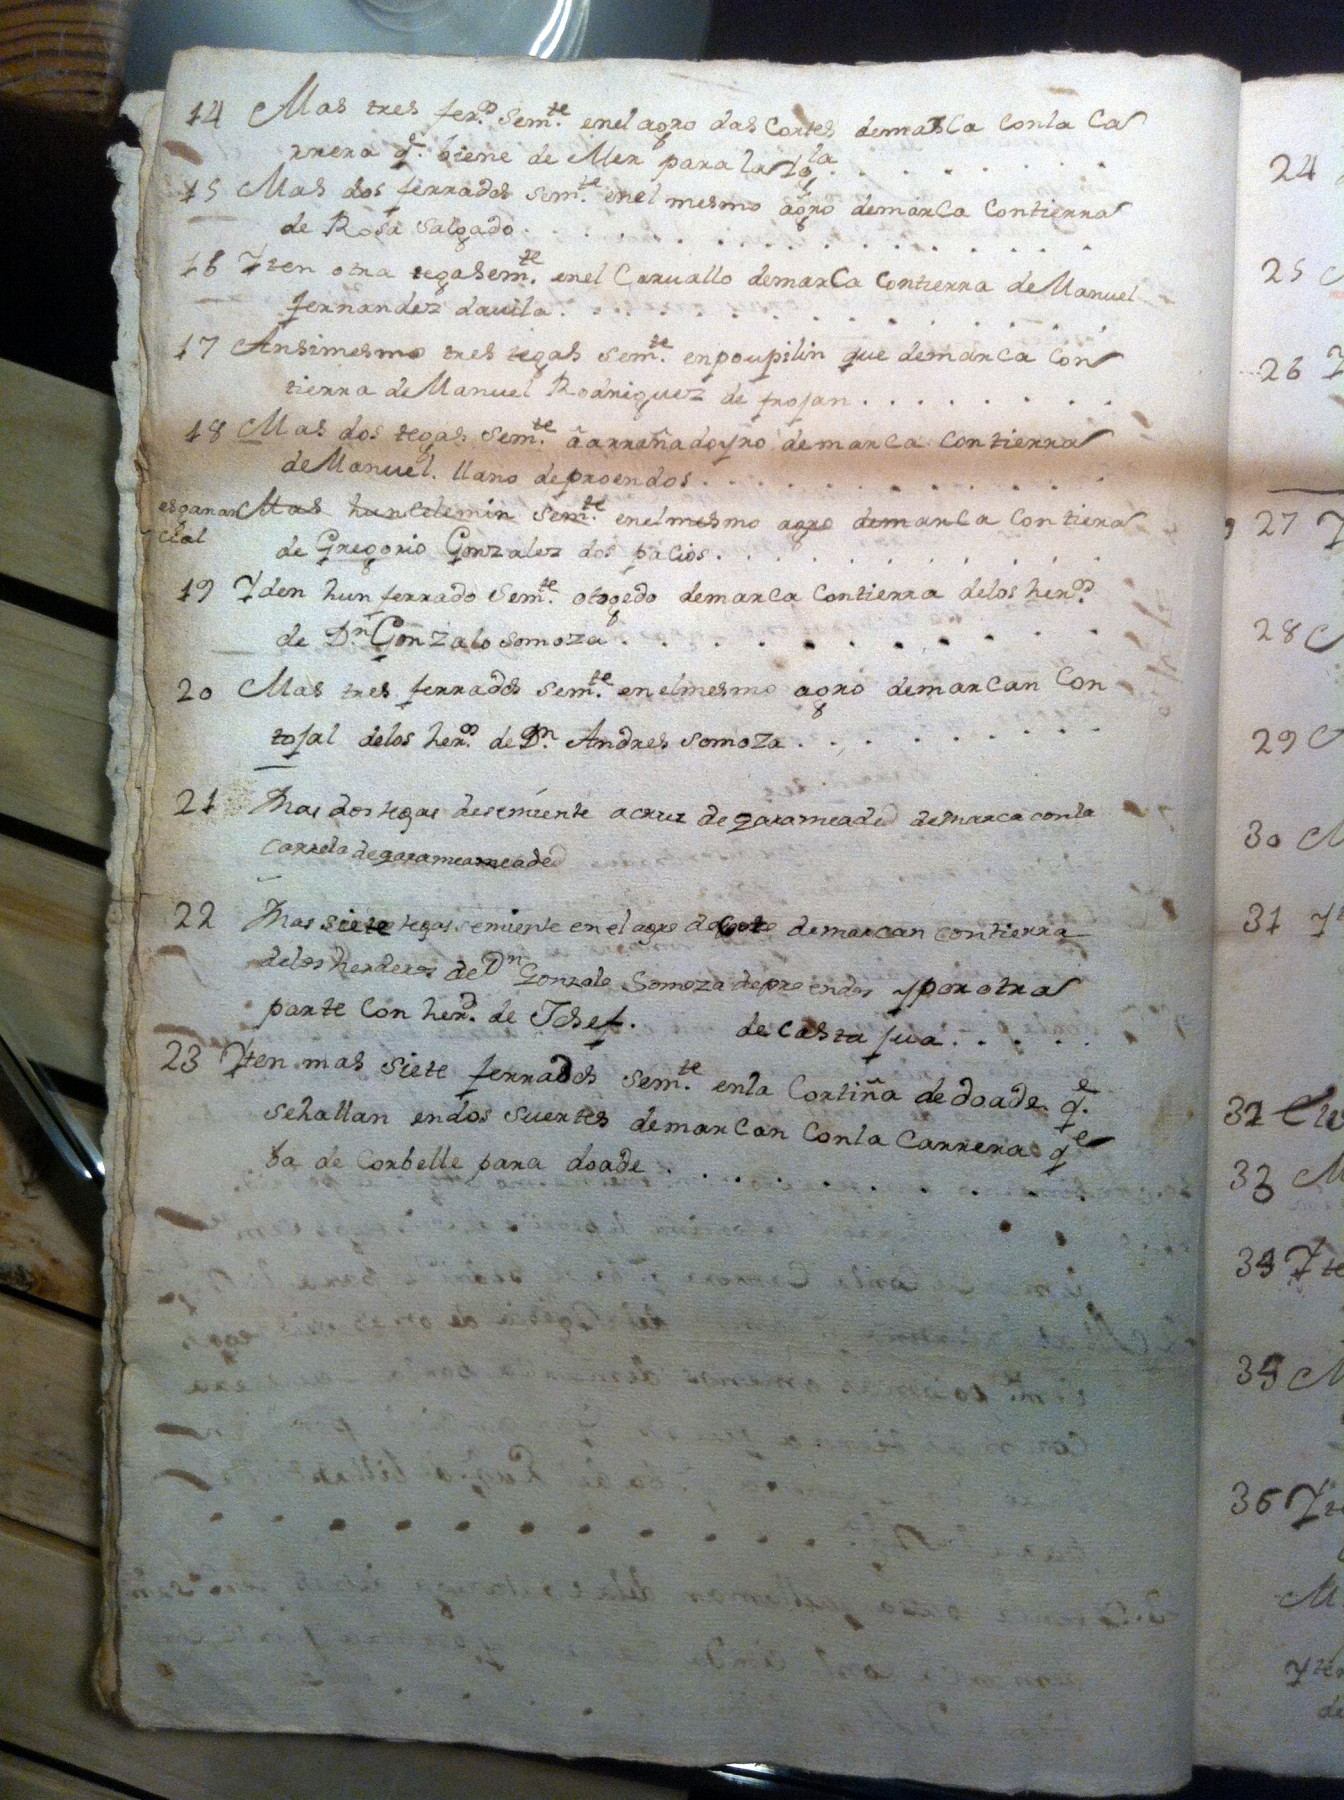 14 Mas tres ferˢ. semᵗᵉ. enel agro das Cortes demarca Conla Ca
rrera qᵉ. biene de Mer para la
15 Mas dos ferrados semᵗᵉ. enel mesmo agro demarca Contierra
de Rosa Salgado
16 Yten otra tega semᵗᵉ. enel Caruallo demarca Contierra de Manuel
fernandez dauila
17 Ansimesmo tres tegas semᵗᵉ. enpoupilin que demarca Con
tierra de Manuel Rodriguez de frojan
18 Mas dos tegas semᵗᵉ. â arrañadoyro demarca Contierra
de Manuel. llano deproendos
esganan Mas hun celemin semᵗᵉ. enelmesmo agro demarca Contierra
cial de Gregorio Gonzalez dos pacios
19 Yden hun ferrado semᵗᵉ. otogedo demarca Contierra delos herˢ.
de Dⁿ. Gonzalo somoza
20 Mas tres ferrados semᵗᵉ. enelmesmo agro demarcan Con
tojal delos herˢ. de Dⁿ. Andres somoza
21 Mas dos tegas desemiente a cruz de garameaded demarca conla
carrela degarameameaded
22 Mas siete tegas semiente en el agro de demarcan contierra
delos herderos de Dⁿ Gonzalo Somoza deproendos yporotra
parte Con herᵈ. de Josef. de Castasua
23 Yten mas siete ferrados semᵗᵉ. enla Cortiña de doade qᵉ.
sehallan endos suertes demarcan Conla Carrera qᵉ
ba de Corbelle para doade
24
25
26
27
28
29
30
31
32
33
34
35
36